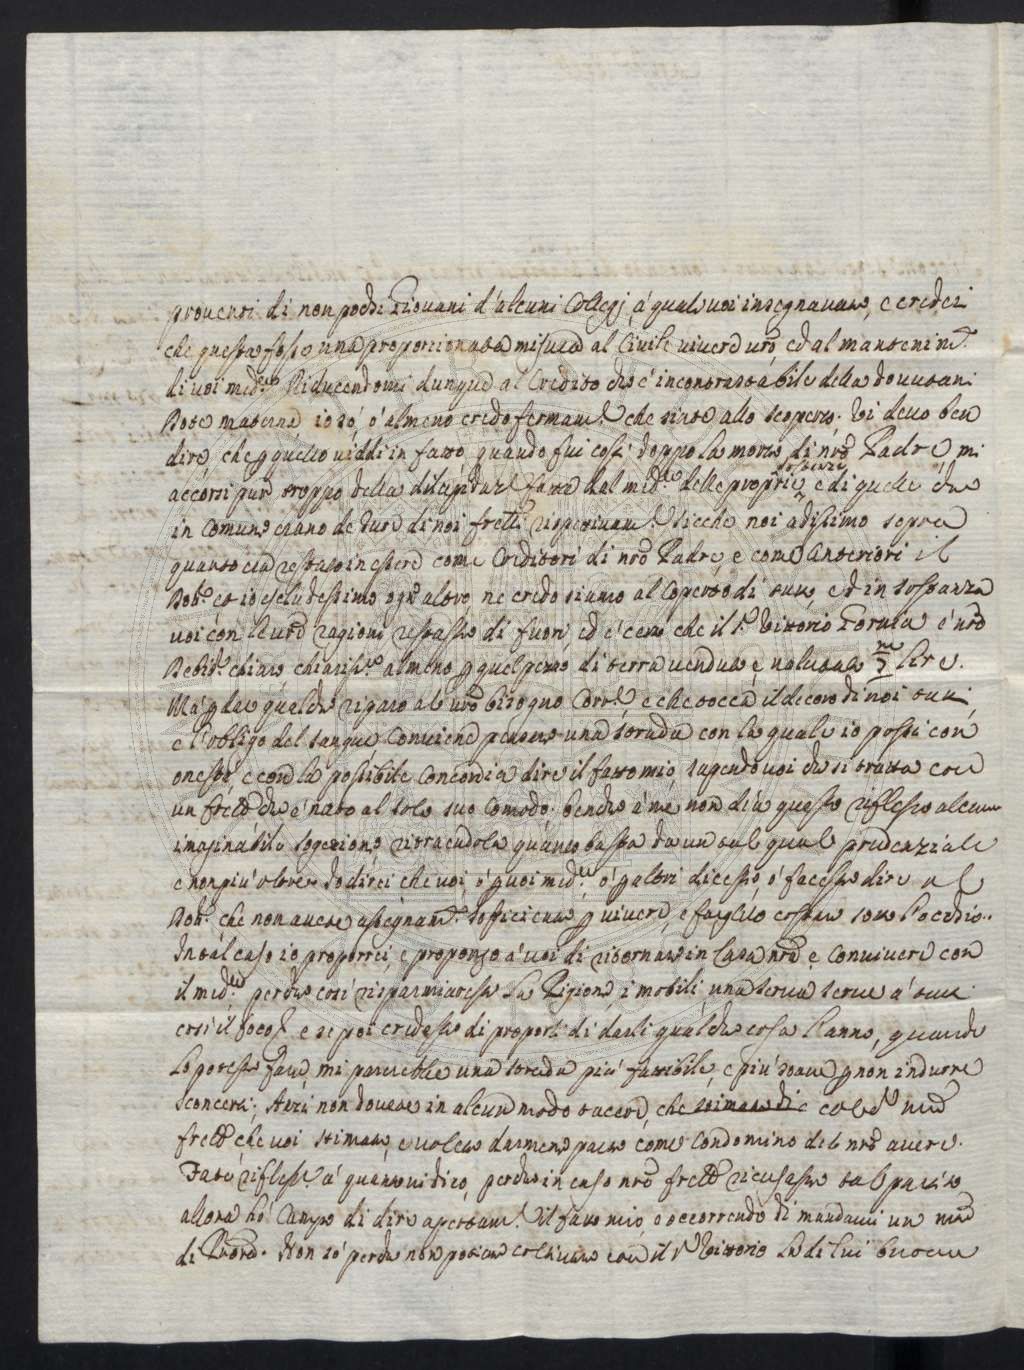 proventi di non pochi Giovani d'alcuni Collegj, á quali voi insegnavate, e credei
che questa fosse una proporzionata misura al Civile vivere vro, ed al mantenim.to
di voi med.mo Riducendomi dunque al Credito ch'è incontrastabile della dovutavi
Dote materna io só, ó almeno credo fermam.e che siate allo scoperto. Vi devo ben
dire, che p quello viddi in fatto, quando fui costì doppo la morte di nro Padre, mi
accorsi pur troppo della dilapidaz.e fatta dal med.mo delle proprie sostanze, e di quelle che
in comune erano de Jure di noi fretti rispettivam.e Sicché noi adissimo sopra
quanto era restato in essere come Creditori di nro Padre, e come Anteriori il
Dot.r et io escludessimo ogn'altro ne credo siamo al coperto di tutto, ed in sostanza
voi con le vre ragioni restaste di fuori, ed é certo che il S.r Vittorio Fornia é nro
Debit.e chiaro, chiariss.mo almeno p quel pezzo di terra venduto, e valutato m/7 Lire.
Má p dar qualche riparo al vro bisogno Corr.e, e che tocca il decoro di noi tutti,
e l'obligo del sangue Conviene pensare una strada con la quale io possa con
onestá, e con la possibile Concordia dire il fatto mio, sapendo voi che si tratta con
un frello che é nato al solo suo Comodo. benche á mé non dia questo riflesso alcuna
imaginabile sogezione ritraendola quanto basta da un tal qual prudenziale
e non piú oltre. Io direi che voi, ó p voi med.mo, ó p altri diceste ó faceste dire al
Dot.r che non avete assegnam.to sofficiente p vivere, e farglilo costare sotto l'occhio..
In tal caso io proporrei, e propongo á voi di ritornare in Casa nra e convivere con
il med.mo perche così risparmiareste la Pigione, i mobili, una serva serve á tutti
così il foco, e se poi credeste di proporli di darli qualche cosa l'anno, quando
lo poteste fare, mi parerebbe una strada piú fattibile, e piú soave p non indurre
sconcerti; Anzi non dovete in alcun modo tacere, che e cotest nro
frello che voi stimate, e volete darmene parte come Condomino del nro avere.
Fate rifless.e á quanto vi dico, perche in caso nro frello ricusasse tal partito
allora hó Campo di dire apertam.e il fatto mio, e occorrendo di mandarvi un mand
di Procra. Non só perche non potiate coltivare con il S.r Vittorio la di lui buona